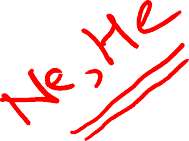 Ne, He